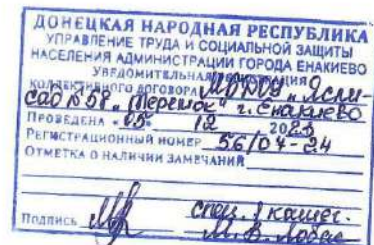 ДОНЕЦКАЯ НАРОДНАЯ РЕСПУБЛИКА
УПРАВЛЕНИЕ ТРУДА И СОЦИАЛЬНОЙ ЗАЩИТЫ
НАСЕЛЕНИЯ АДМИНИСТРАЦИИ ГОРОДА ЕНАКИЕВО
УВЕДОМИТЕЛЬНАЯ РЕГИСТРАЦИЯ
КОЛЛЕКТИВНОГО ДОГОВОРА МБДОУ „Ясли-
сад №58 „Теремок" г. Енакиево
ПРОВЕДЕНА «05» 12 2023
РЕГИСТРАЦИОННЫЙ НОМЕР 56/04-24
ОТМЕТКА О НАЛИЧИИ ЗАМЕЧАНИЙ
спец. 1 катег.
ПОДПИСЬ М.В.